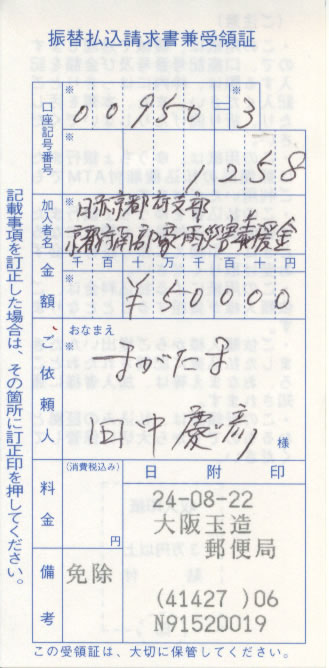 振替払込請求書兼受領証
口座記号番号
※ 00950=3
※ 1258
加入者名
日赤京都府支部
京都府南部豪雨災害義援金
金額
千百十万千百十円
※ ¥50000
ご依頼人
おなまえ
※ すがたま
田中慶彦 様
料金
(消費税込み)
円
日附印
24-08-22
大阪玉造
郵便局
(41427 )06
N91520019
備考
免除
記載事項を訂正した場合は、その箇所に訂正印を押してください。
この受領証は、大切に保管してください。